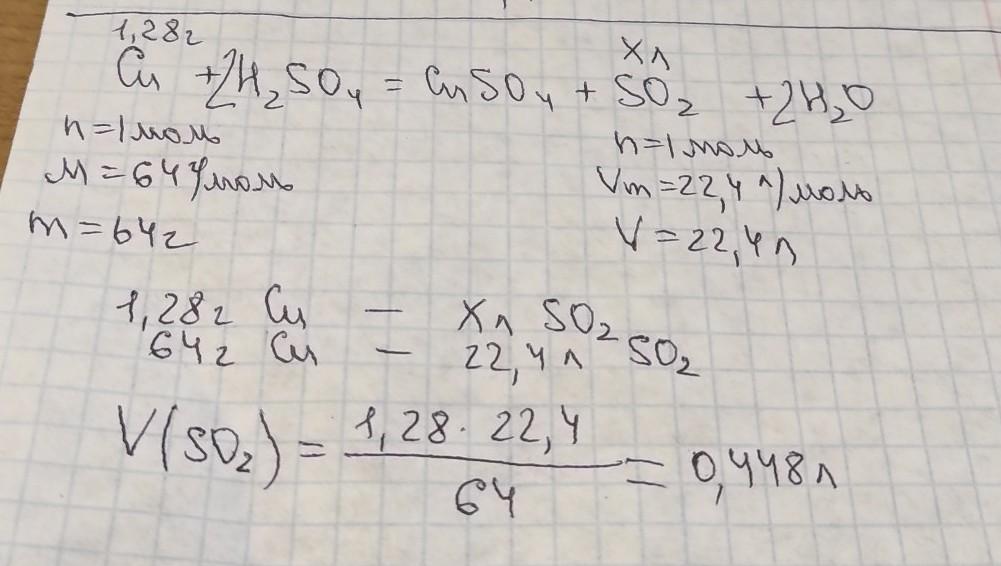 1,28г Xл
Cu + 2H₂SO₄ = CuSO₄ + SO₂ + 2H₂O
n = 1 моль n = 1 моль
M = 64 г/моль Vm = 22,4 л/моль
m = 64г V = 22,4 л
1,28г Cu — Xл SO₂
64г Cu — 22,4л SO₂
V(SO₂) = 1,28 · 22,4 / 64 = 0,448л